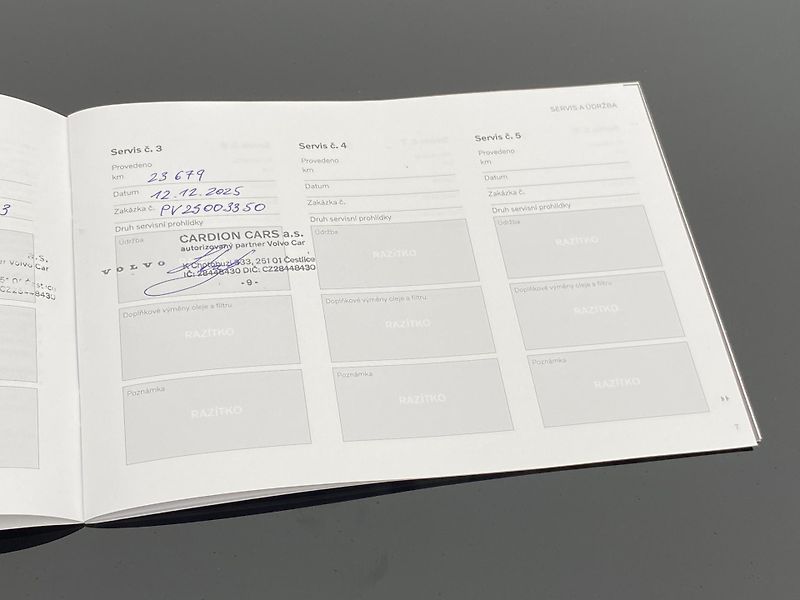 SERVIS A ÚDRŽBA
Servis č. 3
Provedeno
km 23 679
Datum 12.12.2025
Zakázka č. PV25003350
Druh servisní prohlídky
Údržba
CARDION CARS a.s.
autorizovaný partner Volvo Car
VOLVO
K Chotobuzi 333, 251 01 Čestlice
IČ: 28448430 DIČ: CZ28448430
- 9 -
Doplňkové výměny oleje a filtru
RAZÍTKO
Poznámka
RAZÍTKO
Servis č. 4
Provedeno
km
Datum
Zakázka č.
Druh servisní prohlídky
Údržba
RAZÍTKO
Doplňkové výměny oleje a filtru
RAZÍTKO
Poznámka
RAZÍTKO
Servis č. 5
Provedeno
km
Datum
Zakázka č.
Druh servisní prohlídky
Údržba
RAZÍTKO
Doplňkové výměny oleje a filtru
RAZÍTKO
Poznámka
RAZÍTKO
7
3
a.s.
Volvo Car
28448430